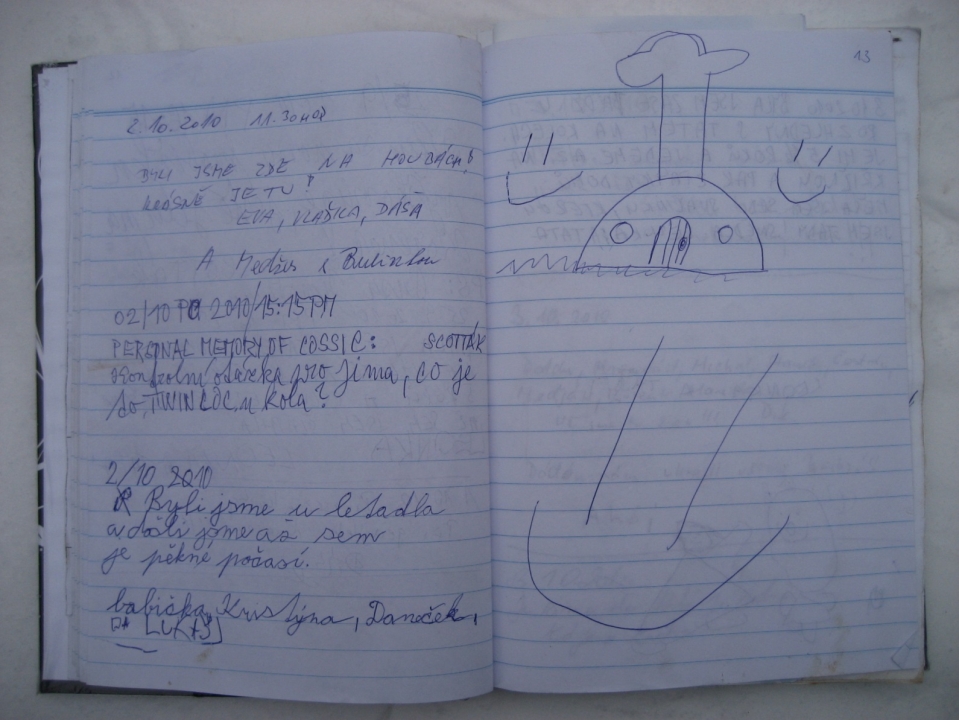 2.10.2010 11.30 HOD
BYLI JSME ZDE NA HOUBÁCH!
KRÁSNĚ JE TU!
EVA, VLAĎKA, DÁŠA
A Medžis s Bulinkou
02/10 PO 2010/15:15 PM
PERSONAL MEMORY OF COSSIC: SCOTTÁK
Kontrolní otázka pro jima, co je
to, TWINLOC u kola?
2/10 2010
Byli jsme u letadla
a došli jsme až sem
je pěkné počasí.
babička, Kristýna, Daneček,
LUKÁŠ
13